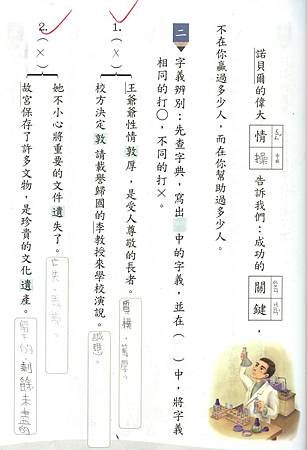 諾貝爾的偉大情操，告訴我們：成功的關鍵，
不在你贏過多少人，而在你幫助過多少人。
二 字義辨別：先查字典，寫出 中的字義，並在（ ）中，將字義
相同的打○，不同的打×。
1.（×） 王爺爺性情敦厚，是受人尊敬的長者。 篤厚。
校方決定敦請載譽歸國的李教授來學校演說。 誠懇。
2.（×） 她不小心將重要的文件遺失了。 亡失、丟棄。
故宮保存了許多文物，是珍貴的文化遺產。 剩餘未盡的